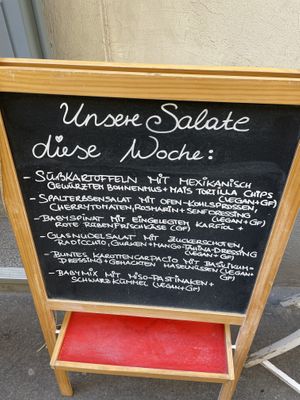 Unsere Salate
diese Woche:
- SÜßKARTOFFELN MIT MEXIKANISCH
GEWÜRZTEN BOHNENMUS + MAIS TORTILLA CHIPS
(VEGAN+GF)
- SPALTERBSENSALAT MIT OFEN-KOHLSPROSSEN,
CHERRYTOMATEN, ROSMARIN + SENFDRESSING
(VEGAN+GF)
- BABYSPINAT MIT EINGELEGTEN KARFIOL +
ROTE RÜBEN FRISCHKÄSE (GF)
- GLASNUDELSALAT MIT ZUCKERSCHOTEN,
RADICCHIO, GURKEN + MANGO-TAHINA-DRESSING
(VEGAN+GF)
- BUNTES KAROTTENCARPACCIO MIT BASILIKUM-
DRESSING + GEHACKTEN HASELNÜSSEN (VEGAN+
GF)
- BABYMIX MIT MISO-PASTINAKEN +
SCHWARZKÜMMEL (VEGAN+GF)